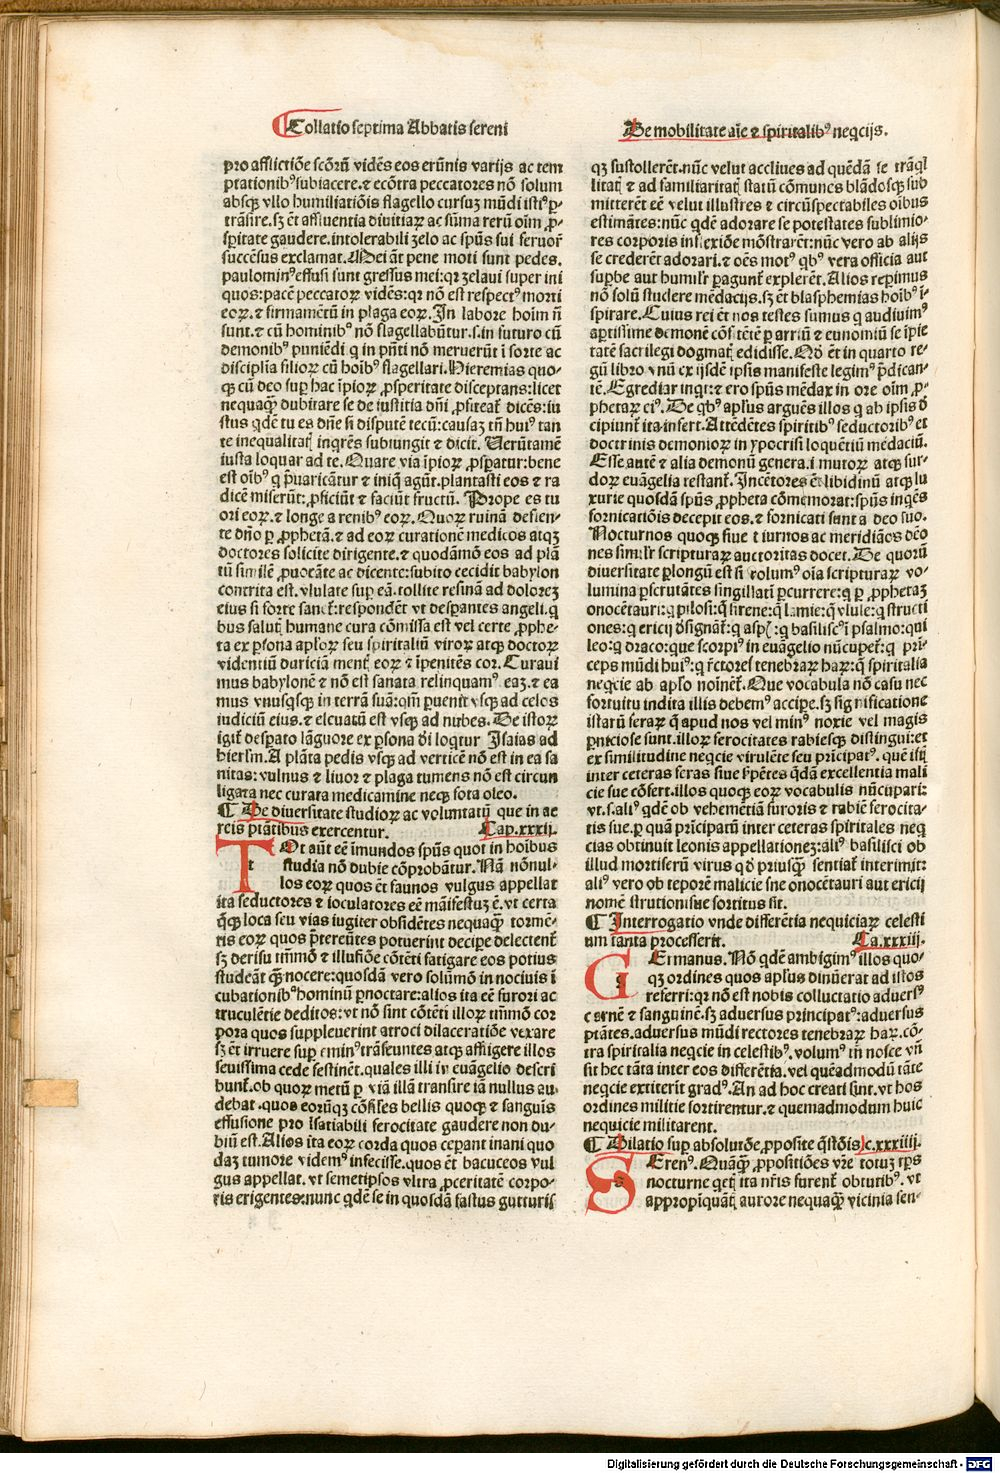 Collatio septima Abbatis sereni
De mobilitate aīe ⁊ spiritalibꝰ neqcijs.
pro afflictiōe scōꝝ vidēs eos erūnis varijs ac tem
ptationibꝰ subiacere.⁊ ecōtra peccatores nō solum
absqꝫ vllo humiliatiōis flagello cursuꝫ mūdi istiꝰ ꝑ-
trāsire.sꝫ ēt affluentia diuitiaꝝ ac sūma rerū oīm ꝓ-
speritate gaudere.intolerabili zelo ac spūs sui feruor̄
succēsus exclamat.Mei āt pene moti sunt pedes.
paulominꝰ effusi sunt gressus mei:qꝛ zelaui super ini
quos:pacē peccatoꝝ vidēs:qꝛ nō est respectꝰ morti
eoꝝ.⁊ firmamētū in plaga eoꝝ.In labore hoīm nī
sunt.⁊ cū hominibꝰ nō flagellabūtur.s.in futuro cū
demonibꝰ puniēdi q̇ in pn̄ti nō meruerūt ī sorte ac
disciplīa filioꝝ cū hoībꝰ flagellari.Hieremias quo-
qꝫ cū deo suꝑ hac īpioꝝ ꝓsperitate disceptans:licet
nequaqꝫ̄ dubitare se de iustitia dn̄i ꝓfiteat̄ dicēs:iu
stus qdē tu es dn̄e si disputē tecū:causaꝫ tn̄ huiꝰ tan
te inequalitatꝭ inq̇rēs subiungit ⁊ dicit. Verūtamē
iusta loquar ad te.Quare via īpioꝝ ꝓspatur:bene
est oībꝰ q̇ p̄uaricātur ⁊ iniq̄ agūt.plantasti eos ⁊ ra
dicē miserūt:ꝓficiūt ⁊ faciūt fructū. Prope es tu
ori eoꝝ.⁊ longe a renibꝰ eoꝝ.Quoꝝ ruinā deflen-
te dn̄o ꝑ ꝓphetā.⁊ ad eoꝝ curationē medicos atqꝫ
doctores solicite dirigente.⁊ quodāmō eos ad plā
tū similē ꝓuocāte ac dicente:subito cecidit babylon
contrita est.vlulate super eā.tollite resinā ad doloreꝫ
eius si forte sanet̄:respondēt vt desperantes angeli.q̇
bus salutꝭ humane cura cōmissa est vel certe ꝓphe-
ta ex ꝑsona apl̄oꝝ seu spiritaliū viroꝝ atqꝫ doctoꝝ
videntiū duriciā mentꝭ eoꝝ ⁊ īpenitēs cor.Curaui
mus babylonē ⁊ nō est sanata relinquamꝰ eaꝫ.⁊ ea
mus vnusqsqꝫ in terrā suā:qm̄ ꝑuenit vsqꝫ ad celos
iudiciū eius.⁊ eleuatū est vsqꝫ ad nubes.De istoꝝ
igit̄ desperato lāguore ex ꝑsona dei loqtur Isaias ad
hierl̄m.A plāta pedis vsqꝫ ad verticē nō est in ea sa
nitas:vulnus ⁊ liuor ⁊ plaga tumens nō est circun
ligata nec curata medicamine neqꝫ fota oleo.
¶ De diuersitate studioꝝ ac voluntatū que in ae
reis ptātibus exercentur. Cap.xxxij.
TOt aūt eē īmundos spūs quot in hoībus
studia nō dubie cōprobātur. Nā nōnul-
los eoꝝ quos ēt faunos vulgus appellat
ita seductores ⁊ ioculatores eē māifestuꝫ ē.vt certa
q̄qꝫ loca seu vias iugiter obsidētes nequaqꝫ̄ tormē-
tis eoꝝ quos p̄tereūtes potuerint deciꝑe delectent̄
sꝫ derisu tm̄mō ⁊ illusiōe cōtēti fatigare eos potius
studeāt qꝫ̄ nocere:quosdā vero solūmō in nociuis ī
cubationibꝰ hominū ꝑnoctare:alios ita eē furori ac
truculētie deditos:vt nō sint cōtēti illoꝝ tm̄mō cor
pora quos suppleuerint atroci dilaceratiōe vexare
sꝫ ēt irruere suꝑ eminꝰ trāseuntes atqꝫ affligere illos
seuissima cede festinēt.quales illi in euāgelio descri
bunt̄.ob quoꝝ metū ꝑ viā illā transire iā nullus au-
debat.quos eorūqꝫ cōsiles bellis quoqꝫ ⁊ sanguīs
effusione pro īsatiabili ferocitate gaudere non du-
biū est.Alios ita eoꝝ corda quos ceperant inani quo
daꝫ tumore videmꝰ infecisse.quos ēt bacuceos vul
gus appellat.vt semetipsos vltra ꝓceritatē corpo-
ris erigentes:nunc qdē se in quosdā fastus gutturis
qꝫ sustollerēt.nūc velut accliues ad quēdā se trāql
litatꝭ ⁊ ad familiaritatꝭ statū cōmunes blādosqꝫ sub
mitterēt eē velut illustres ⁊ circūspectabiles oībus
estimātes:nūc qdē adorare se potestates sublimio-
res corporis inflexiōe mōstrarēt:nūc vero ab alijs
se crederēt adorari.⁊ oēs motꝰ qbꝰ vera officia aut
supbe aut humilr̄ pagunt̄ explerēt.Alios reperimus
nō solū studere mēdacijs.sꝫ ēt blasphemias hoībꝰ ī-
spirare.Cuius rei ēt nos testes sumus q̇ audiuimꝰ
aptissime demonē cōfitētē ꝑ arriū ⁊ eunomiū se īpie
tatē sacrilegi dogmatꝭ edidisse.Qd̄ ēt in quarto re-
gū libro vnū ex ijsdē ipsis manifeste legimꝰ p̄dican-
tē.Egrediar inqt:⁊ ero spūs mēdax in ore oīm ꝓ-
phetaꝝ eiꝰ.De qbꝰ apl̄us arguēs illos q̇ ab ipsis de
cipiunt̄ ita infert.Attēdētes spiritibꝰ seductoribꝰ et
doctrinis demonioꝝ in ypocrisi loquētiū mēdaciū.
Esse autē ⁊ alia demonū genera.i mutoꝝ atqꝫ sur-
doꝝ euāgelia testant̄.Incētores ēt libidinū atqꝫ lu
xurie quosdā spūs ꝓpheta cōmemorat:spūs inqēs
fornicatiōis decepit eos.⁊ fornicati sunt a deo suo.
Nocturnos quoqꝫ siue diurnos ac meridiāos dēo
nes similr̄ scripturaꝝ auctoritas docet.De quorū
diuersitate ꝑlongū est si volumꝰ oīa scripturaꝝ vo-
lumina ꝑscrutātes singillati ꝑcurrere:q̇ ꝑ ꝓphetaꝫ
onocētauri:q̇ pilosi:q̄ sirene:q̄ lamie:q̄ vlule:q̇ structi
ones:q̇ ericij designāt̄:q̇ aspꝭ:q̇ basiliscꝰ ī psalmo:qui
leo:q̇ draco:que scorpiꝰ in euāgelio nūcupet̄:q̇ prī-
ceps mūdi huiꝰ:q̇ rectores tenebraꝝ haꝝ:q̄ spiritalia
neqcie ab apl̄o noīnēt̄.Que vocabula nō casu nec
fortuitu indita illis debemꝰ accipe.sꝫ significatione
istarū feraꝝ q̄ apud nos vel minꝰ noxie vel magis
ꝑniciose sunt.illoꝝ ferocitates rabiesqꝫ distingui:et
ex similitudine neqcie virulēte seu prīcipatꝰ.quē istꝭ
inter ceteras feras siue sꝑētes qdā excellentia mali
cie sue cōfert.illos quoqꝫ eoꝝ vocabulis nūcupari:
vt.s.aliꝰ qdē ob vehemētiā furoris ⁊ rabiē ferocita-
tis sue.ꝑ quā prīcipatū inter ceteras spiritales neq̇
cias obtinuit leonis appellationeꝫ:aliꝰ basilisci ob
illud mortiferū virus qd̄ priusqꝫ̄ sentiat̄ interimit:
aliꝰ vero ob teporē malicie sne onocētauri aut ericij
nomē strutionisue sortitus sit.
¶ Interrogatio vnde differētia nequiciaꝝ celesti
um tanta processerit. Ca.xxxiij.
GErmanus. Nō qdē ambigimꝰ illos quo-
qꝫ ordines quos apl̄us dinūerat ad istos
referri:qꝛ nō est nobis colluctatio aduersꝰ
carnē ⁊ sanguinē:sꝫ aduersus principatꝰ:aduersus
ptātes.aduersus mūdi rectores tenebraꝝ haꝝ.cō-
tra spiritalia neqcie in celestibꝰ.volumꝰ tn̄ nosce vn̄
sit hec tāta inter eos differētia.vel quēadmodū tāte
neqcie extiterīt gradꝰ.An ad hoc creati sunt.vt hos
ordines militie sortirentur.⁊ quemadmodum huic
nequicie militarent.
¶ Dilatio suꝑ absolutōe ꝓposite q̄stōis c.xxxiiij.
SErenꝰ. Quāqꝫ̄ ꝓpositiōes vr̄e totuꝫ tꝑs
nocturne qetꝭ ita nr̄is furent̄ obtutibꝰ.vt
appropīquātꝭ aurore nequaqꝫ̄ vicinia sen-
Digitalisierung gefördert durch die Deutsche Forschungsgemeinschaft - DFG